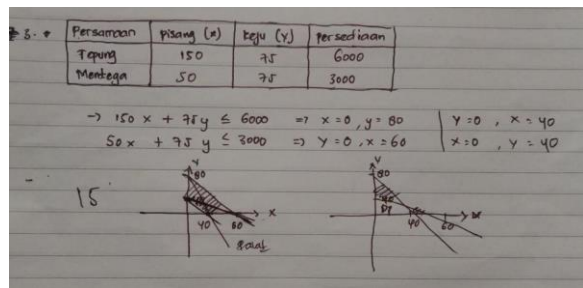 3. • Persamaan Pisang (x) keju (y) Persediaan
Tepung 150 75 6000
Mentega 50 75 3000
→ 150 x + 75 y ≤ 6000 => x = 0, y = 80 | y = 0, x = 40
50 x + 75 y ≤ 3000 => y = 0, x = 60 | x = 0, y = 40
15
y 80 40 60 x
Salah
y 80 DP 40 60 x